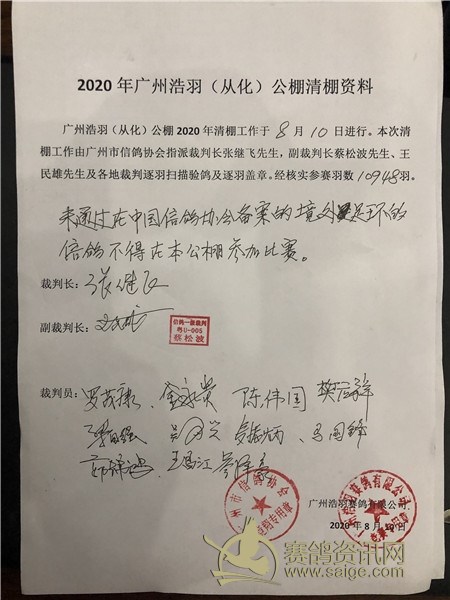 2020 年广州浩羽（从化）公棚清棚资料
广州浩羽（从化）公棚 2020 年清棚工作于 8 月 10 日进行。本次清
棚工作由广州市信鸽协会指派裁判长张继飞先生，副裁判长蔡松波先生、王
民雄先生及各地裁判逐羽扫描验鸽及逐羽盖章。经核实参赛羽数 10948羽。
未通过在中国信鸽协会备案的境外足环的
信鸽不得在本公棚参加比赛。
裁判长：张继飞
副裁判长：
信鸽一级裁判
粤U-005
蔡松波
裁判员：罗茂康、陈伟国
广州市信鸽协会
广州浩羽赛鸽有限公司
2020 年 8 月 10 日
赛鸽资讯网
www.saige.com